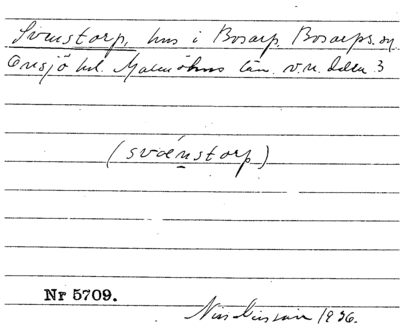 Svenstorp, hus i Bosarp, Bosarps sn
Onsjö hd. Malmöhus län. v.n. d:den 3
(svænstorp)
Nr 5709.
1936.